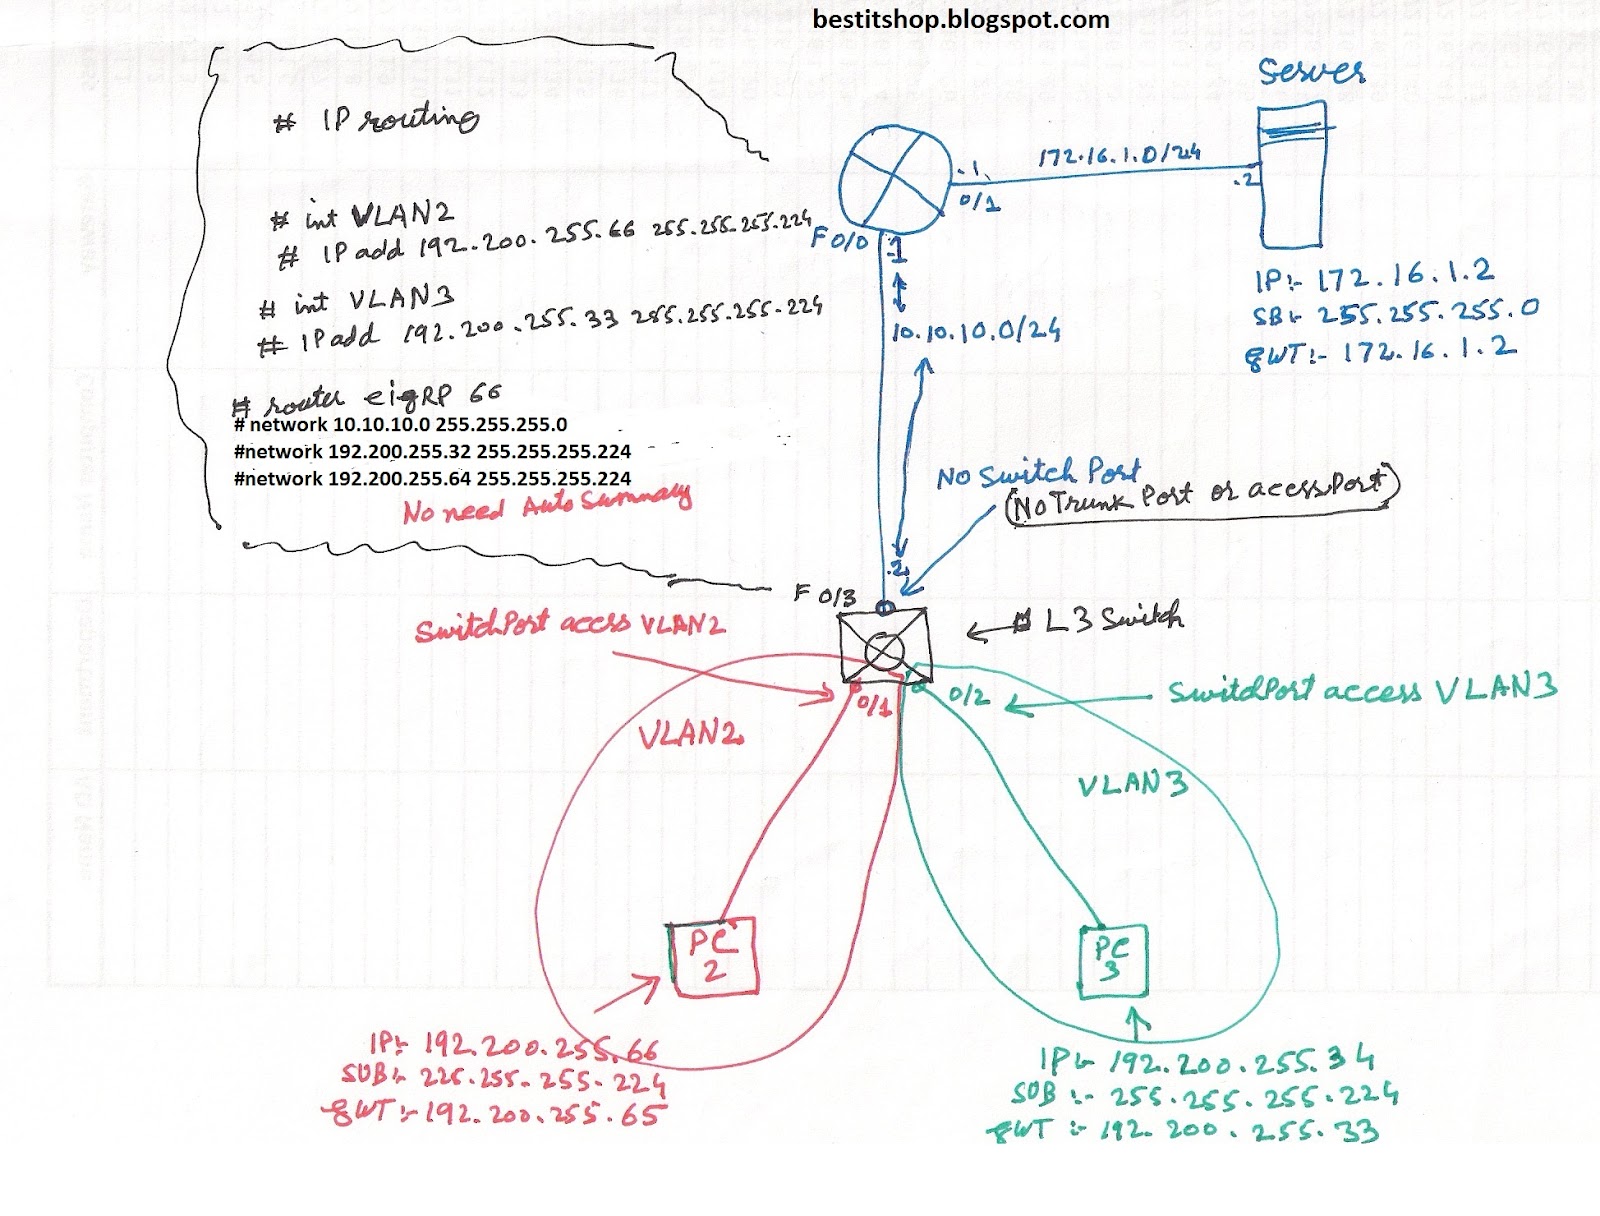 bestitshop.blogspot.com
# IP routing
# int VLAN2
# IP add 192.200.255.66 255.255.255.224
# int VLAN3
# IP add 192.200.255.33 255.255.255.224
# router eigRP 66
# network 10.10.10.0 255.255.255.0
#network 192.200.255.32 255.255.255.224
#network 192.200.255.64 255.255.255.224
No need Auto Summary
Server
172.16.1.0/24
.1
0/1
.2
F 0/0
.1
10.10.10.0/24
IP:- 172.16.1.2
SB:- 255.255.255.0
gWT:- 172.16.1.2
No Switch Port
(No Trunk Port or acessPort)
.2
F 0/3
# L3 Switch
SwitchPort access VLAN2
0/1
0/2
SwitchPort access VLAN3
VLAN2
VLAN3
PC
2
PC
3
IP:- 192.200.255.66
SUB:- 225.255.255.224
gWT:- 192.200.255.65
IP:- 192.200.255.34
SUB :- 255.255.255.224
gWT :- 192.200.255.33